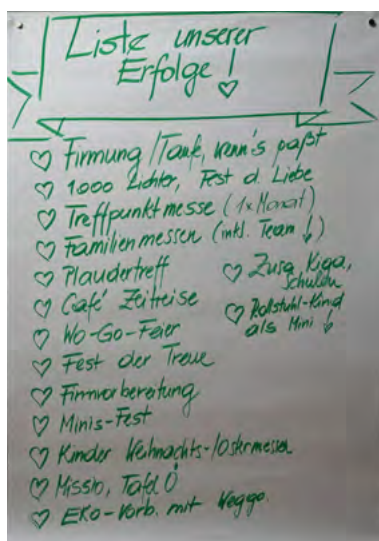 Liste unserer
Erfolge!
Firmung/Taufe, wenn's paßt
1.000 Lichter, Fest d. Liebe
Treffpunktmesse (1x Monat)
Familienmessen (inkl. Team ↓)
Plaudertreff
Café Zeitreise
Wo-Go-Feier
Fest der Treue
Firmvorbereitung
Minis-Fest
Kinder Weihnachts-/Ostermessen
Missio, Tafel Ö
EKO-Vorb. mit Weggo.
Zusa, Kiga,
Schulen
Rollstuhl-Kind
als Mini ↓